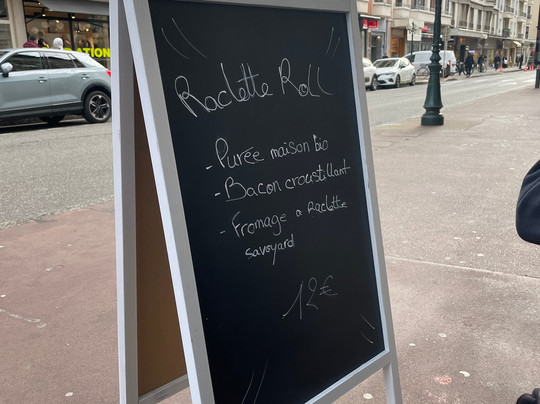 Raclette Roll
- Purée maison bio
- Bacon croustillant
- Fromage a Raclette
savoyard
12€